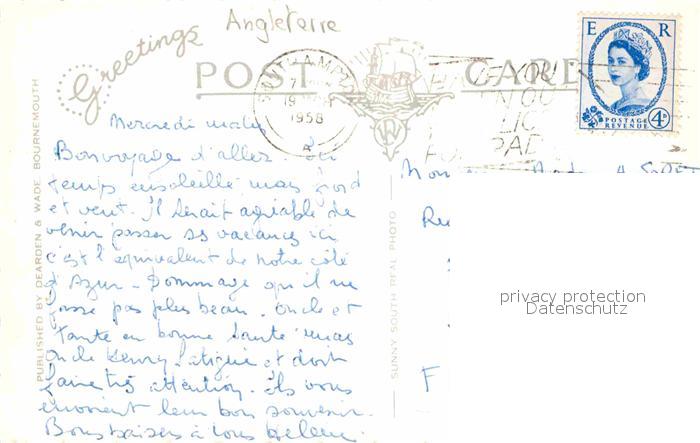 Angleterre
Greetings
POST CARD
E R
POSTAGE
REVENUE
4D
SOUTHAMPTON
19
1958
PUBLISHED BY DEARDEN & WADE BOURNEMOUTH
SUNNY SOUTH REAL PHOTO
Mercredi matin
Bon voyage d'aller. Un
temps ensoleillé mais froid
et vent. Il serait agréable de
venir passer ses vacances ici
c'est l'équivalent de notre côté
d'Azur. Dommage qu'il ne
fasse pas plus beau. Oncle et
Tante en bonne santé mais
Oncle Henry fatigué et doit
faire très attention. Ils vous
envoient leur bon souvenir.
Bons baisers à tous Hélène
F
privacy protection
Datenschutz